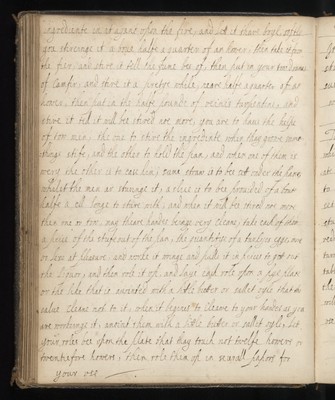 ingrediants in it againe ouer the fire, and let it there boyle, often
you stirringe it a boute halfe a quarter of an hower, then take it from
the fire, and stirre it till the fume bee of, then put in your
of Camfir, and stirre it a pretye while, neare halfe a quarter of an
hower, then put in the halfe pounde of turpentine, and
stirre it till it will be stirred no more, you are to haue the helpe
of two men, the one to stirre the ingrediente when they growe some
thinge stife, and the other to hold the pan, and when one of them is
wery the other is to ease him, some straw is to be set under the pan
whilst the man is stirringe it, alsoe is to be prouided of a
halfe a ell longe to stirre with, and when it will be stired no more
then one or two, may there hands beinge very cleane, take each of them
a peece of the stufe out of the pan, the quantitye of a
or lesse at pleasure and worke it and in peeces to get out
the liquor, and then role it of, and laye each role upon a
or the like that is annointed with a little butter or sallet oyle that the
salue cleaue not to it, when it begines to cleaue to your hands as you
are workeinge it, anoint them with a little butter or sallet oyle, let
your roles bee upon the plate that they touch not twelfe howers or
twentiefore howers, then role them of in seuerall papers for
your use